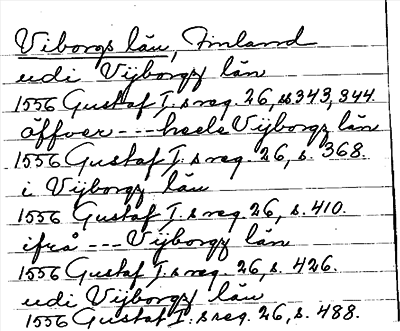 Viborgs län, Finland
udi Vijborgz län
1556 Gustaf I.s reg. 26, ss 343, 344.
öffver --- heele Vijborgz län
1556 Gustaf I.s reg. 26, s. 368.
i Vijborgz län
1556 Gustaf I.s reg. 26, s. 410.
ifrå --- Vijborgz län
1556 Gustaf I.s reg. 26, s. 426.
udi Vijborgz län
1556 Gustaf I.s reg. 26, s. 488.